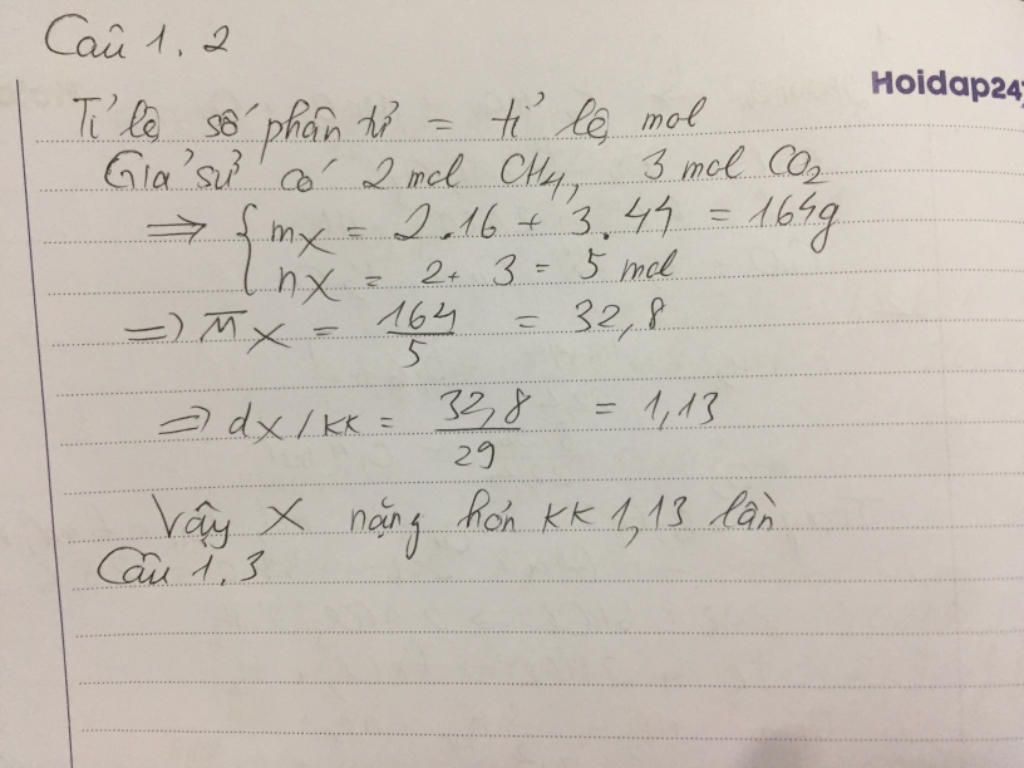 Câu 1.2
Hoidap247
Tỉ lệ số phân tử = tỉ lệ mol
Giả sử có 2 mol CH4, 3 mol CO2
=> { mX = 2.16 + 3.44 = 164g
nX = 2 + 3 = 5 mol
=> M̅X = 164/5 = 32,8
=> dX/KK = 32,8/29 = 1,13
Vậy X nặng hơn KK 1,13 lần
Câu 1.3